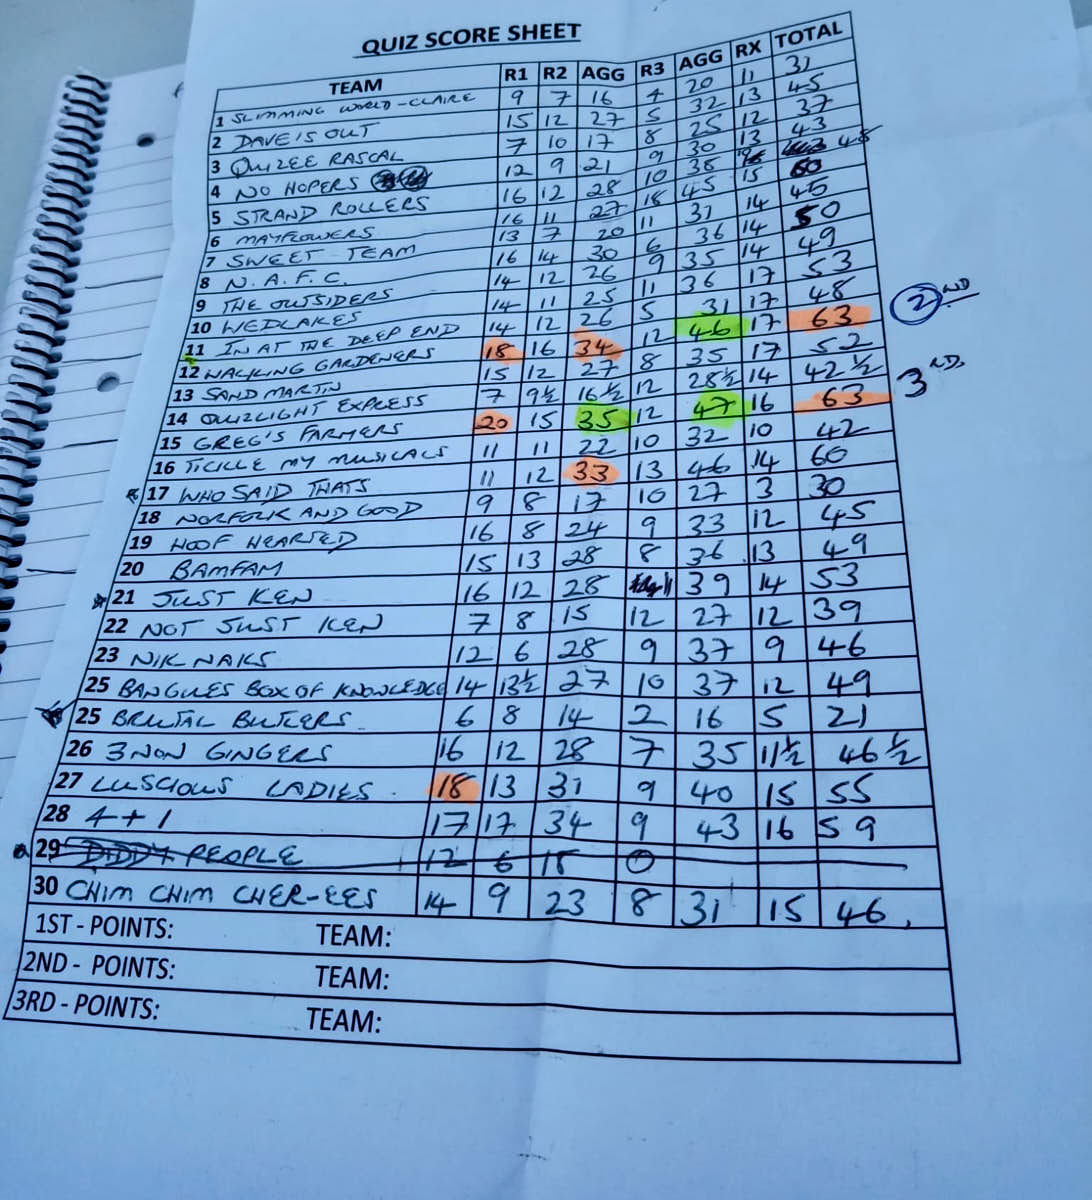 QUIZ SCORE SHEET
TEAM R1 R2 AGG R3 AGG RX TOTAL
1 SLIMMING WORLD - CLAIRE 9 7 16 4 20 11 31
2 DAVE IS OUT 15 12 27 5 32 13 45
3 QUIZEE RASCAL 7 10 17 8 25 12 37
4 NO HOPERS 12 9 21 9 30 13 43
5 STRAND ROLLERS 16 12 28 10 38 48
6 MAYFLOWERS 16 11 27 18 45 15 60
7 SWEET TEAM 13 7 20 11 31 14 45
8 N.A.F.C. 16 14 30 6 36 14 50
9 THE OUTSIDERS 14 12 26 9 35 14 49
10 WEDLAKES 14 11 25 11 36 17 53
11 IN AT THE DEEP END 14 12 26 5 31 17 48
12 WALKING GARDENERS 18 16 34 12 46 17 63 2ND
13 SAND MARTIN 15 12 27 8 35 17 52
14 QUIZLIGHT EXPRESS 7 9½ 16½ 12 28½ 14 42½
15 GREG'S FARMERS 20 15 35 12 47 16 63 3ND.
16 TICKLE MY MUSICALS 11 11 22 10 32 10 42
17 WHO SAID THATS 11 12 33 13 46 14 60
18 NORFOLK AND GOOD 9 8 17 10 27 3 30
19 HOOF HEARTED 16 8 24 9 33 12 45
20 BAMFAM 15 13 28 8 36 13 49
21 JUST KEN 16 12 28 11 39 14 53
22 NOT JUST KEN 7 8 15 12 27 12 39
23 NIK NAKS 12 6 28 9 37 9 46
25 BANGLES BOX OF KNOWLEDGE 14 13½ 27 10 37 12 49
25 BRUTAL BUTLERS 6 8 14 2 16 5 21
26 3 NON GINGERS 16 12 28 7 35 11½ 46½
27 LUSCIOUS LADIES. 18 13 31 9 40 15 55
28 4 + 1 17 17 34 9 43 16 59
29 DIDDY PEOPLE 12 6 18 0
30 CHIM CHIM CHER-EES 14 9 23 8 31 15 46.
1ST - POINTS: TEAM:
2ND - POINTS: TEAM:
3RD - POINTS: TEAM: